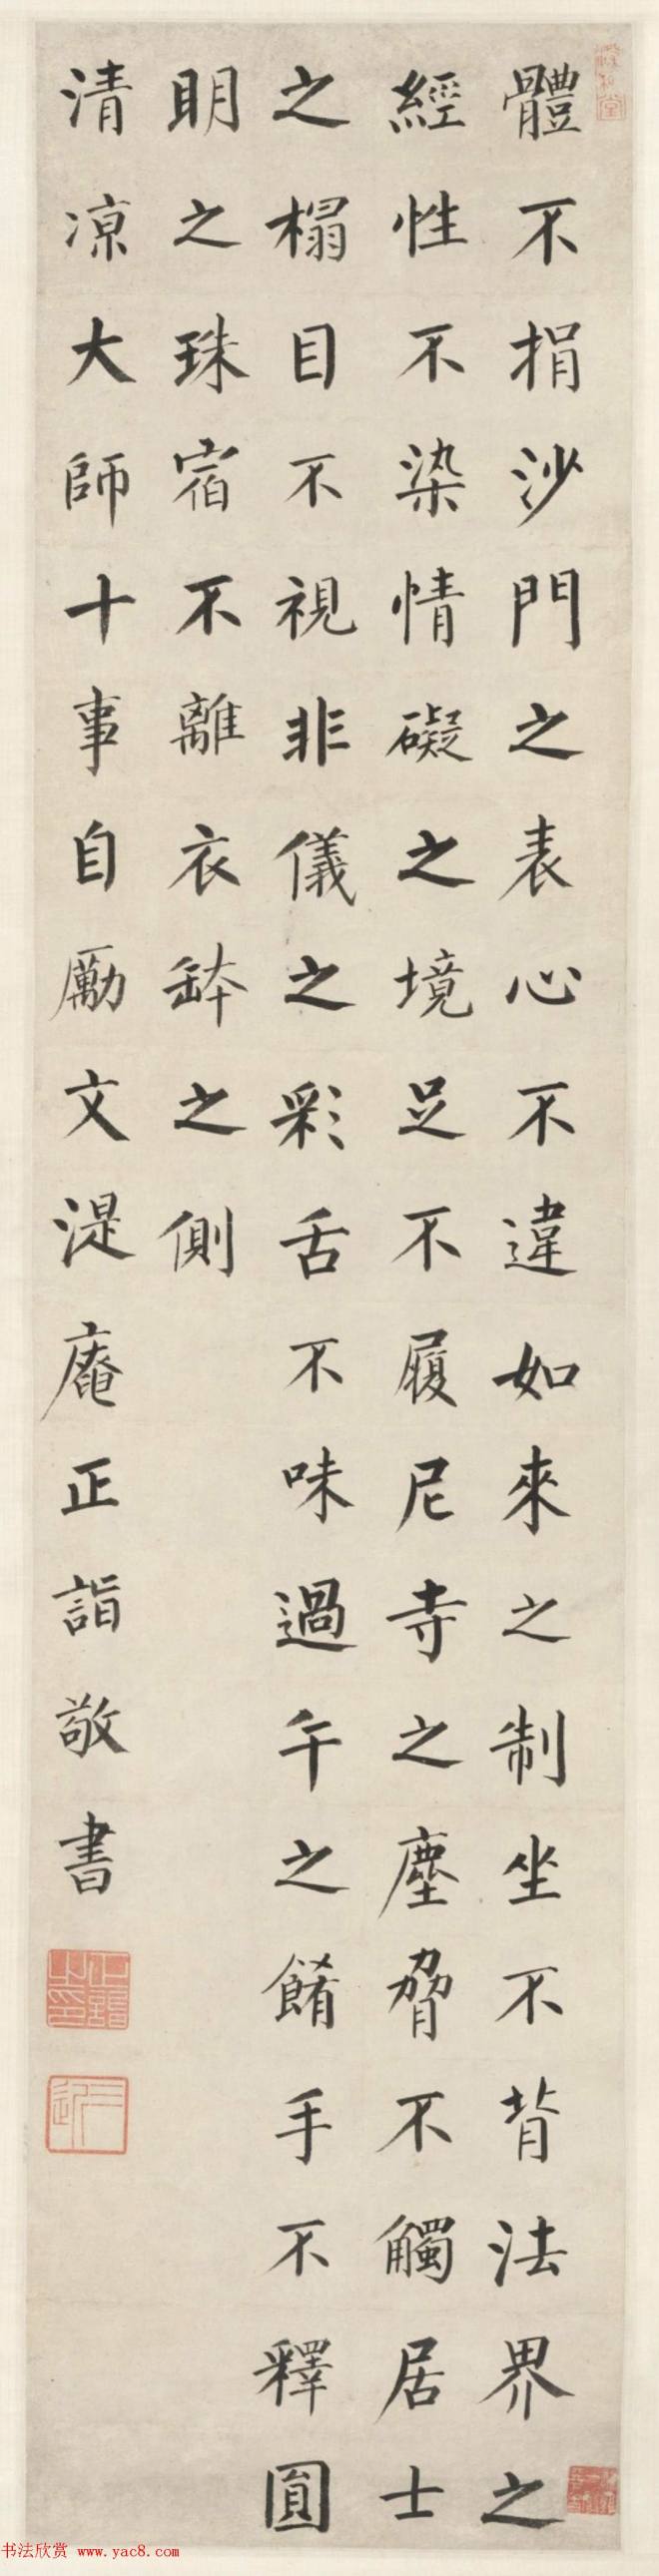 體不捐沙門之表心不違如來之制坐不背法界之
經性不染情礙之境足不履尼寺之塵脅不觸居士
之榻目不視非儀之彩舌不味過午之餚手不釋圓
明之珠宿不離衣鉢之側
清凉大師十事自勵文湜庵正詣敬書
书法欣赏 www.yac8.com